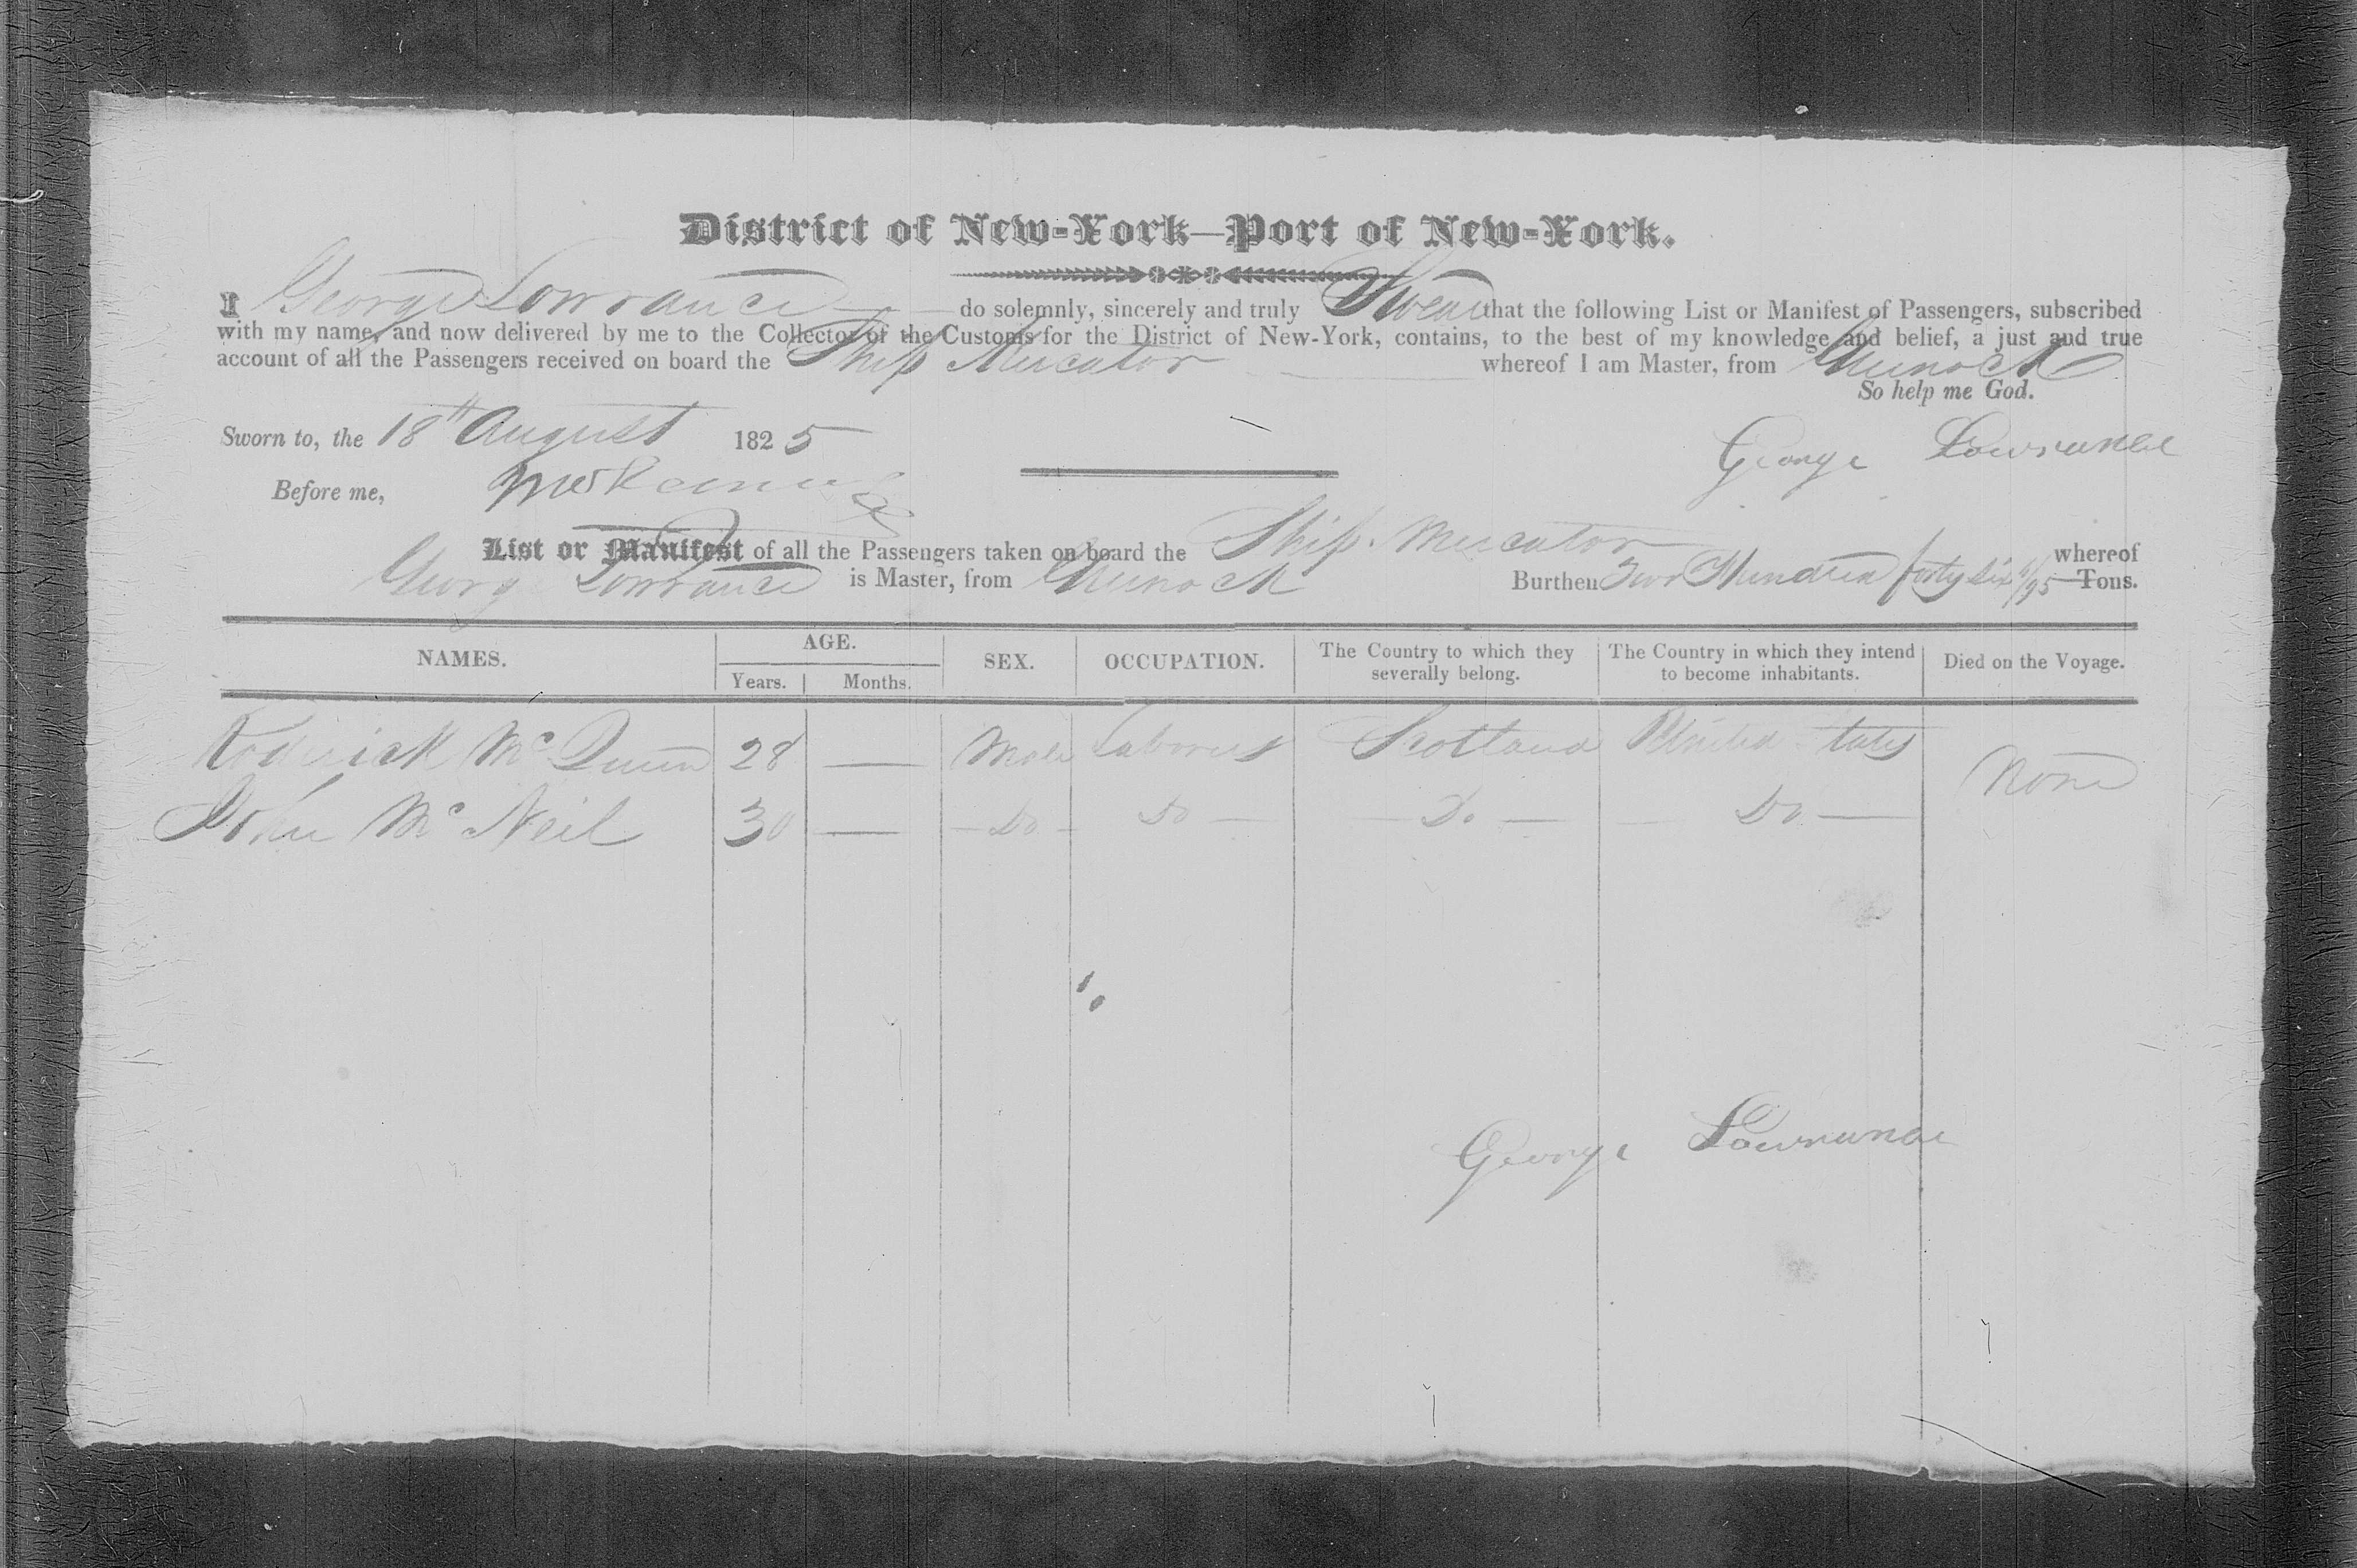 District of New-York—Port of New-York.
I George Lowrance do solemnly, sincerely and truly Swear that the following List or Manifest of Passengers, subscribed
with my name, and now delivered by me to the Collector of the Customs for the District of New-York, contains, to the best of my knowledge and belief, a just and true
account of all the Passengers received on board the Ship Mercator whereof I am Master, from Greenock
So help me God.
Sworn to, the 18th August 1825
George Lowrance
Before me,
List or Manifest of all the Passengers taken on board the Ship Mercator whereof
George Lowrance is Master, from Greenock Burthen Two Hundred forty six /95 Tons.
NAMES. AGE. SEX. OCCUPATION. The Country to which they severally belong. The Country in which they intend to become inhabitants. Died on the Voyage.
Years. Months.
Roderick Mc 28 — Male Labourer Scotland United States None
John McNeil 30 — Do Do Do Do
George Lowrance